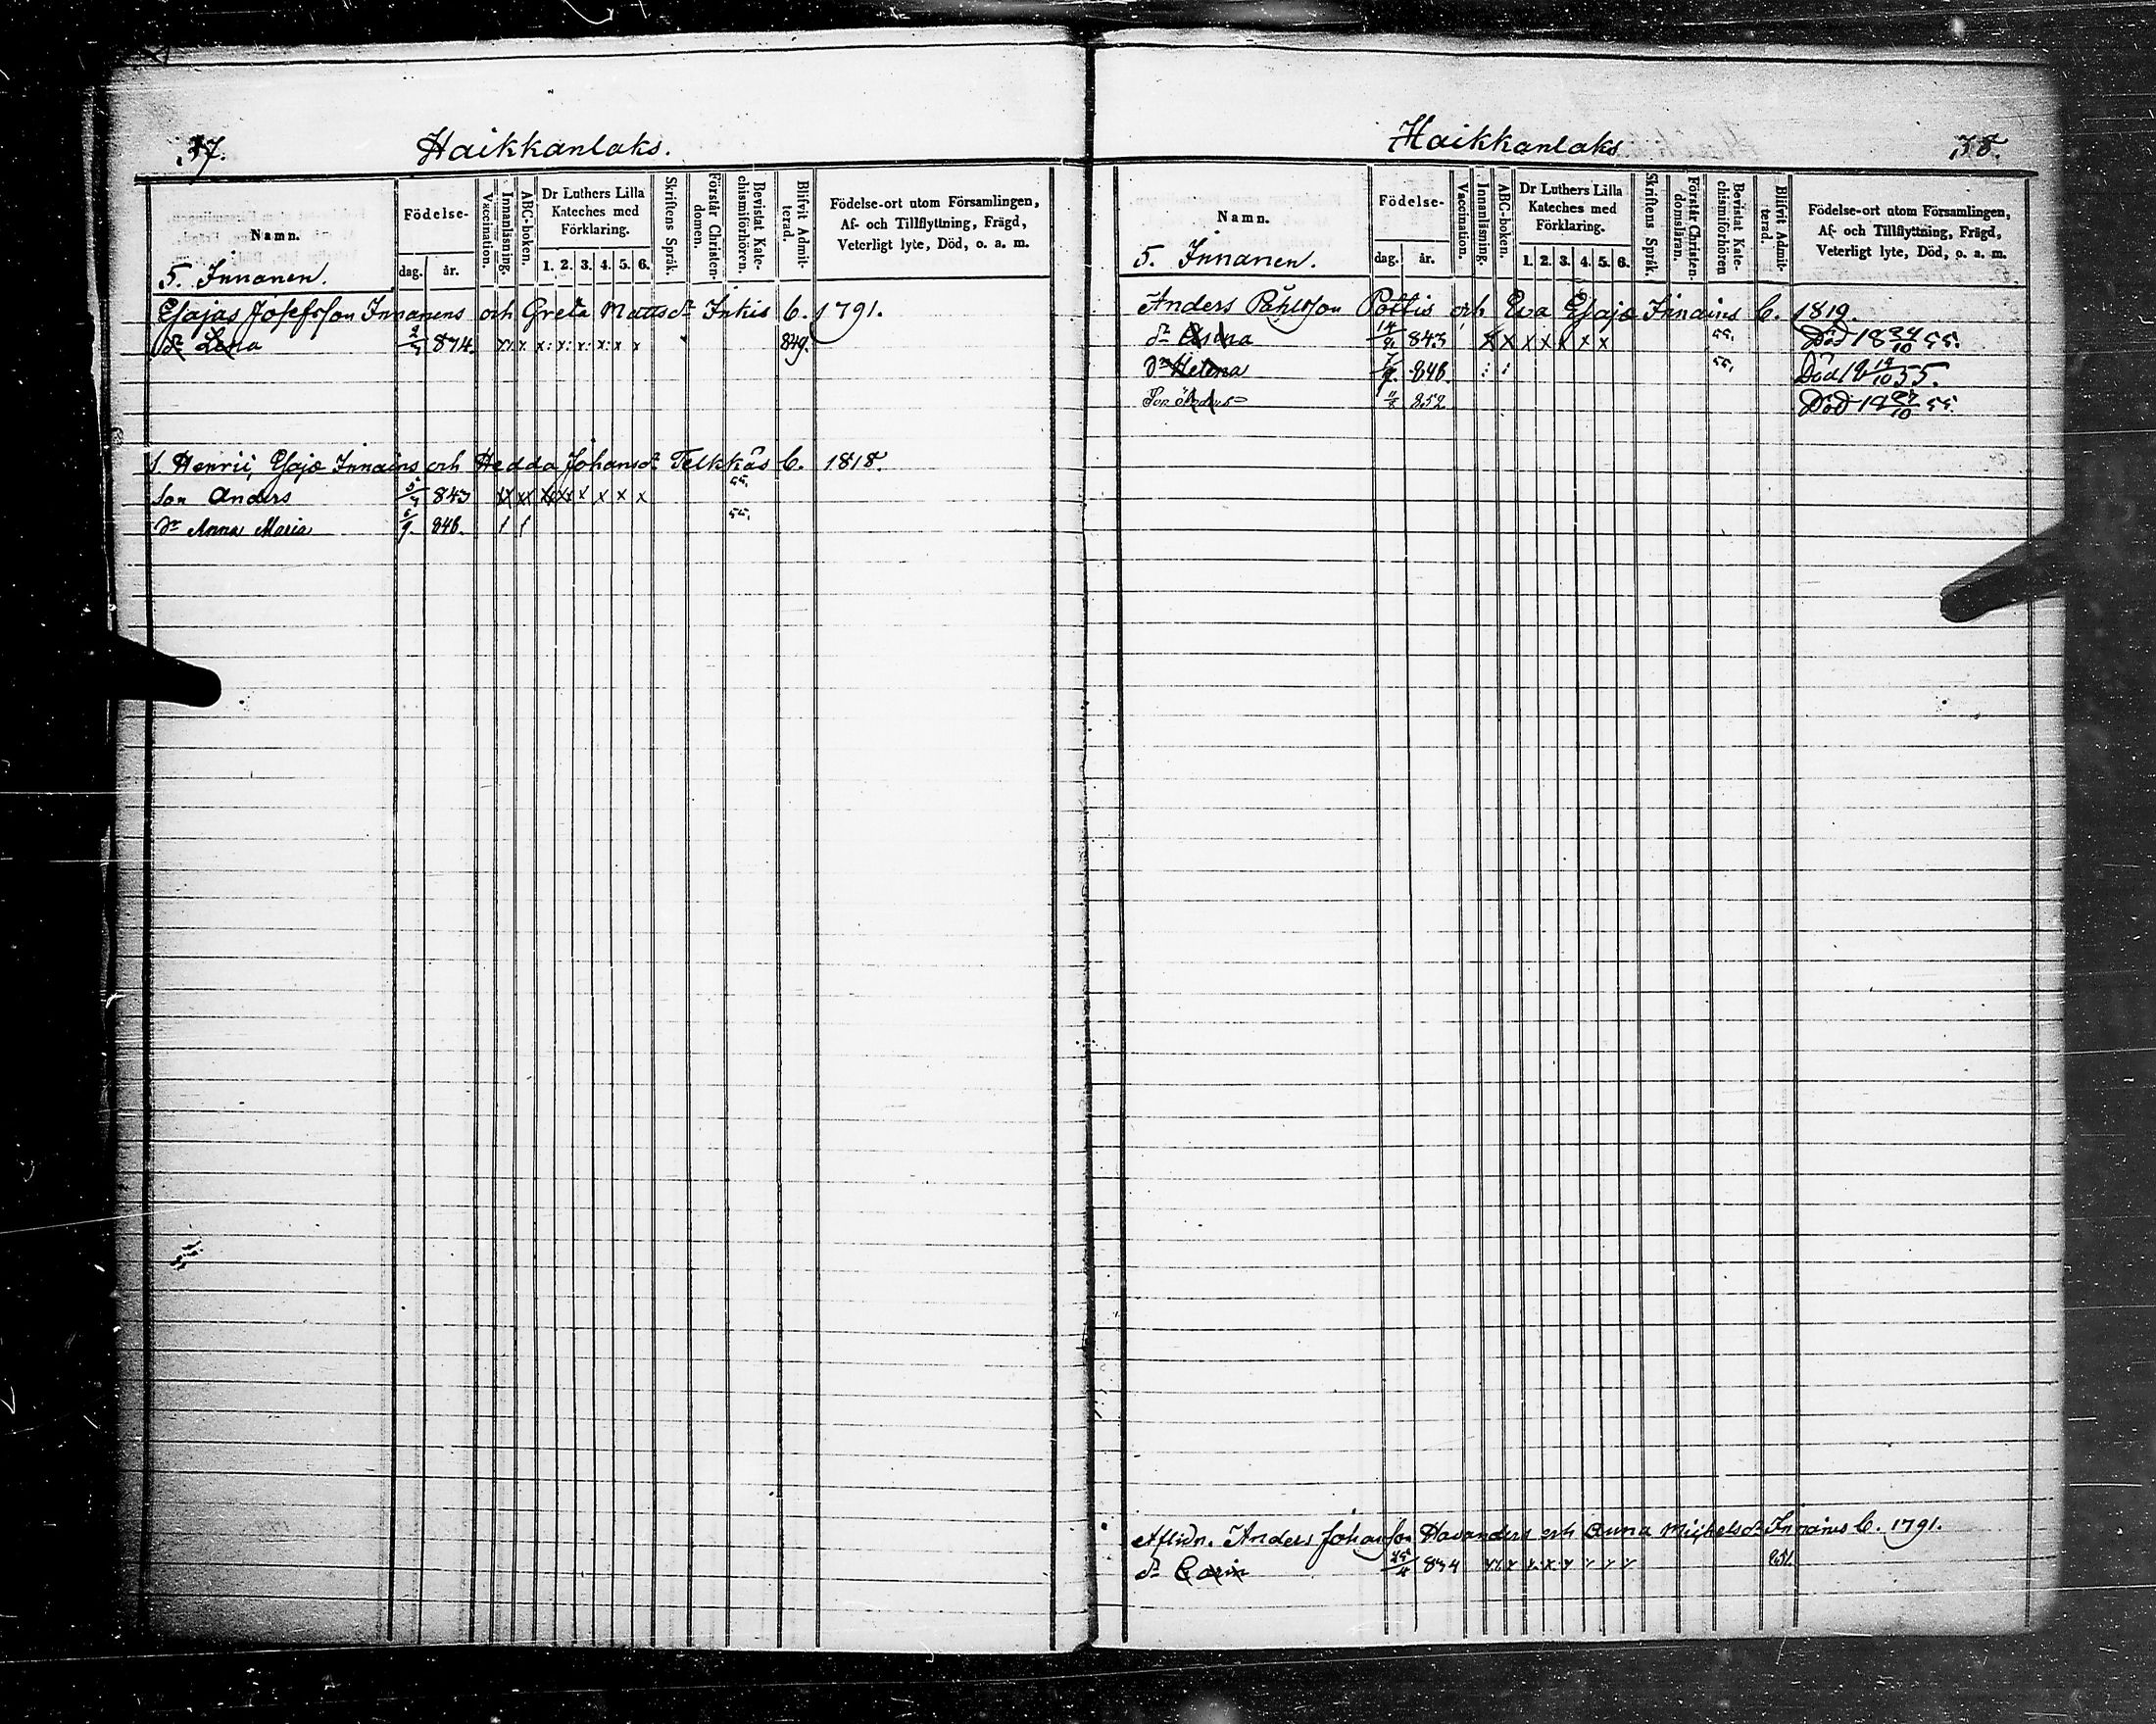 37.
Haikkanlaks.
Namn.
Födelse-
dag. år.
Vaccination.
Innanläsning.
ABC-boken.
Dr Luthers Lilla Kateches med Förklaring.
1. 2. 3. 4. 5. 6.
Skriftens Språk.
Förstår Christendomen.
Bevistat Katechismiförhören.
Blifvit Admitterad.
Födelse-ort utom Församlingen,
Af- och Tillflyttning, Frägd,
Veterligt lyte, Död, o. a. m.
5. Innanen.
Esajas Josefsson Innanens och Greta Mattsdr Inkis C. 1791.
dr Lena 2/3 834. x x x x x x x x 849.
s. Henric Esajæ Innains och Hedda Johansdr Telkkäs C. 1818.
Son Anders 5/7 843 xx xx xx xx x x x x 55.
dr Anna Maria 6/9. 846. / / 55.
Haikkanlaks
38.
Namn.
Födelse-
dag. år.
Vaccination.
Innanläsning.
ABC-boken.
Dr Luthers Lilla Kateches med Förklaring.
1. 2. 3. 4. 5. 6.
Skriftens Språk.
Förstår Christendomsläran.
Bevistat Katechismiförhören
Blifvit Admitterad.
Födelse-ort utom Församlingen,
Af- och Tillflyttning, Frägd,
Veterligt lyte, Död, o. a. m.
5. Innanen.
Anders Påhlsson Pöttis och Eva Esajæ Innains C. 1819.
dr 843 x x x x x x x 55. Död 18 24/10 55.
dr Helena 7/9. 846. 55. Död 18 14/10 55.
Son Anders 852 Död 18 27/10 55.
Aflidn. Anders Johansson Havanders och Anna Michelsdr Innains C. 1791.
dr Carin 25/4 834 x x x x x x x x 851.